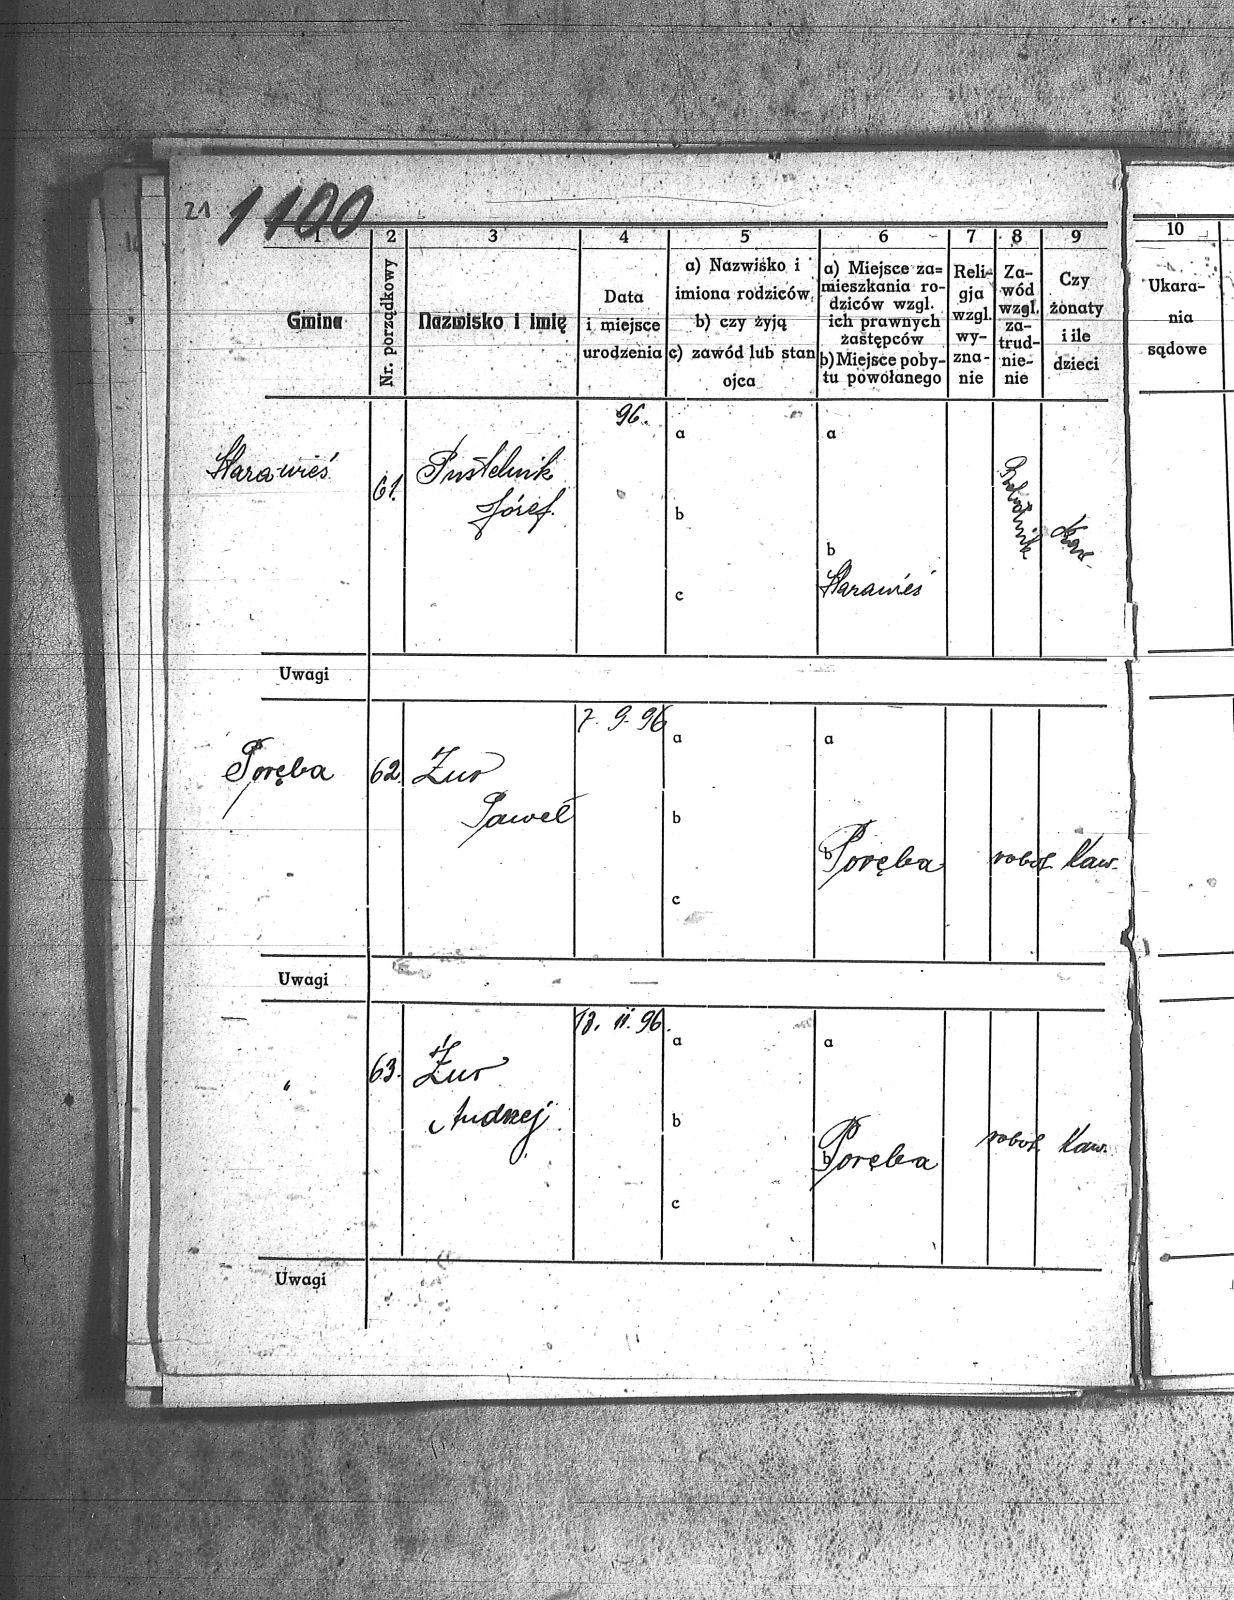 21 1100
1 2 3 4 5 6 7 8 9 10
Gmina
Nr. porządkowy
Nazwisko i imię
Data
i miejsce
urodzenia
a) Nazwisko i
imiona rodziców
b) czy żyją
c) zawód lub stan
ojca
a) Miejsce za=
mieszkania ro-
dziców wzgl.
ich prawnych
zastępców
b) Miejsce poby-
tu powołanego
Reli-
gja
wzgl.
wy-
zna-
nie
Za-
wód
wzgl.
za-
trud-
nie-
nie
Czy
żonaty
i ile
dzieci
Ukara-
nia
sądowe
96.
a a
Starawieś 61. Pustelnik
Józef.
Robotnik Kaw.
b
b
Starawieś
c
Uwagi
7. 9. 96
a a
Poręba 62. Żur
Paweł
b
b Poręba robot. Kaw.
c
Uwagi
13. 11. 96.
a a
" 63. Żur
Andrzej
b
b Poręba robot. Kaw.
c
Uwagi